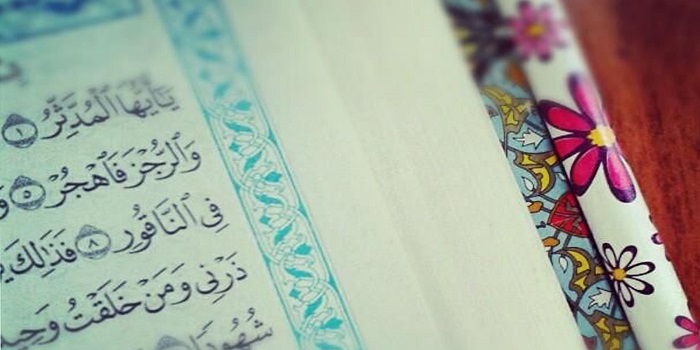 يَٰٓأَيُّهَا ٱلْمُدَّثِّرُ ١
وَٱلرُّجْزَ فَٱهْجُرْ ٥
فِى ٱلنَّاقُورِ ٨ فَذَٰلِكَ
ذَرْنِى وَمَنْ خَلَقْتُ وَحِيدًا
شُهُودًا